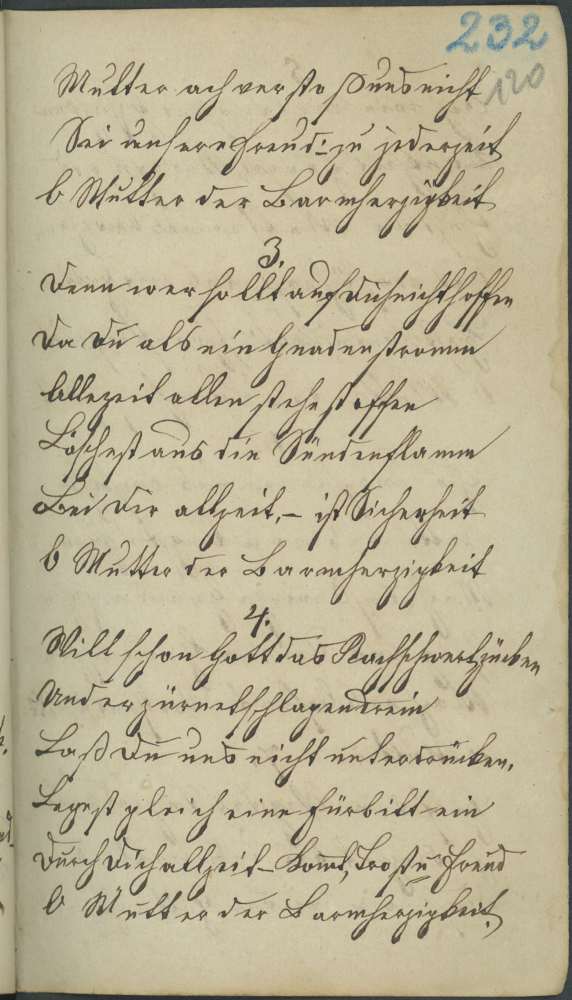 232
120
Mutter ach verstoß uns nicht
Sei unsere Freud: zu jederzeit
O Mutter der Barmherzigkeit
3.
Denn wer sollt auf dich nicht hoffen
Da du als ein Gnadenstromm
Allezeit allen stehst offen
Löschest aus die Sündenflamm
Bei dir allzeit, – ist Sicherheit
O Mutter der Barmherzigkeit
4.
Will schon Gott das Rachschwert zücken
Und erzürnet schlagen drein
Laß du uns nicht unterdrücken,
Legest gleich eine Fürbitt ein
Durch dich allzeit – komt, Trost u Freud
O Mutter der Barmherzigkeit.